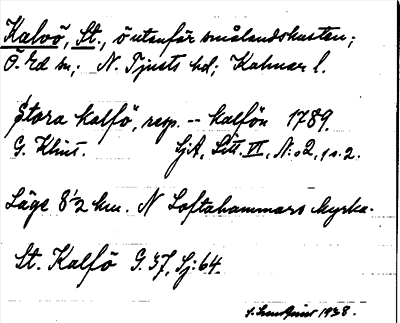 Kalvö, St., ö utanför smålandskusten;
Ö. Ed sn; N. Tjusts hd; Kalmar l.
Stora Kalfö, resp. -- Kalfön 1789.
G. Klint. SjA, Litt. VI, N:o 2, s. 2.
Läge 8 1/2 km. N Loftahammars kyrka.
St. Kalfö G. 37, Sj: 64.
1938.